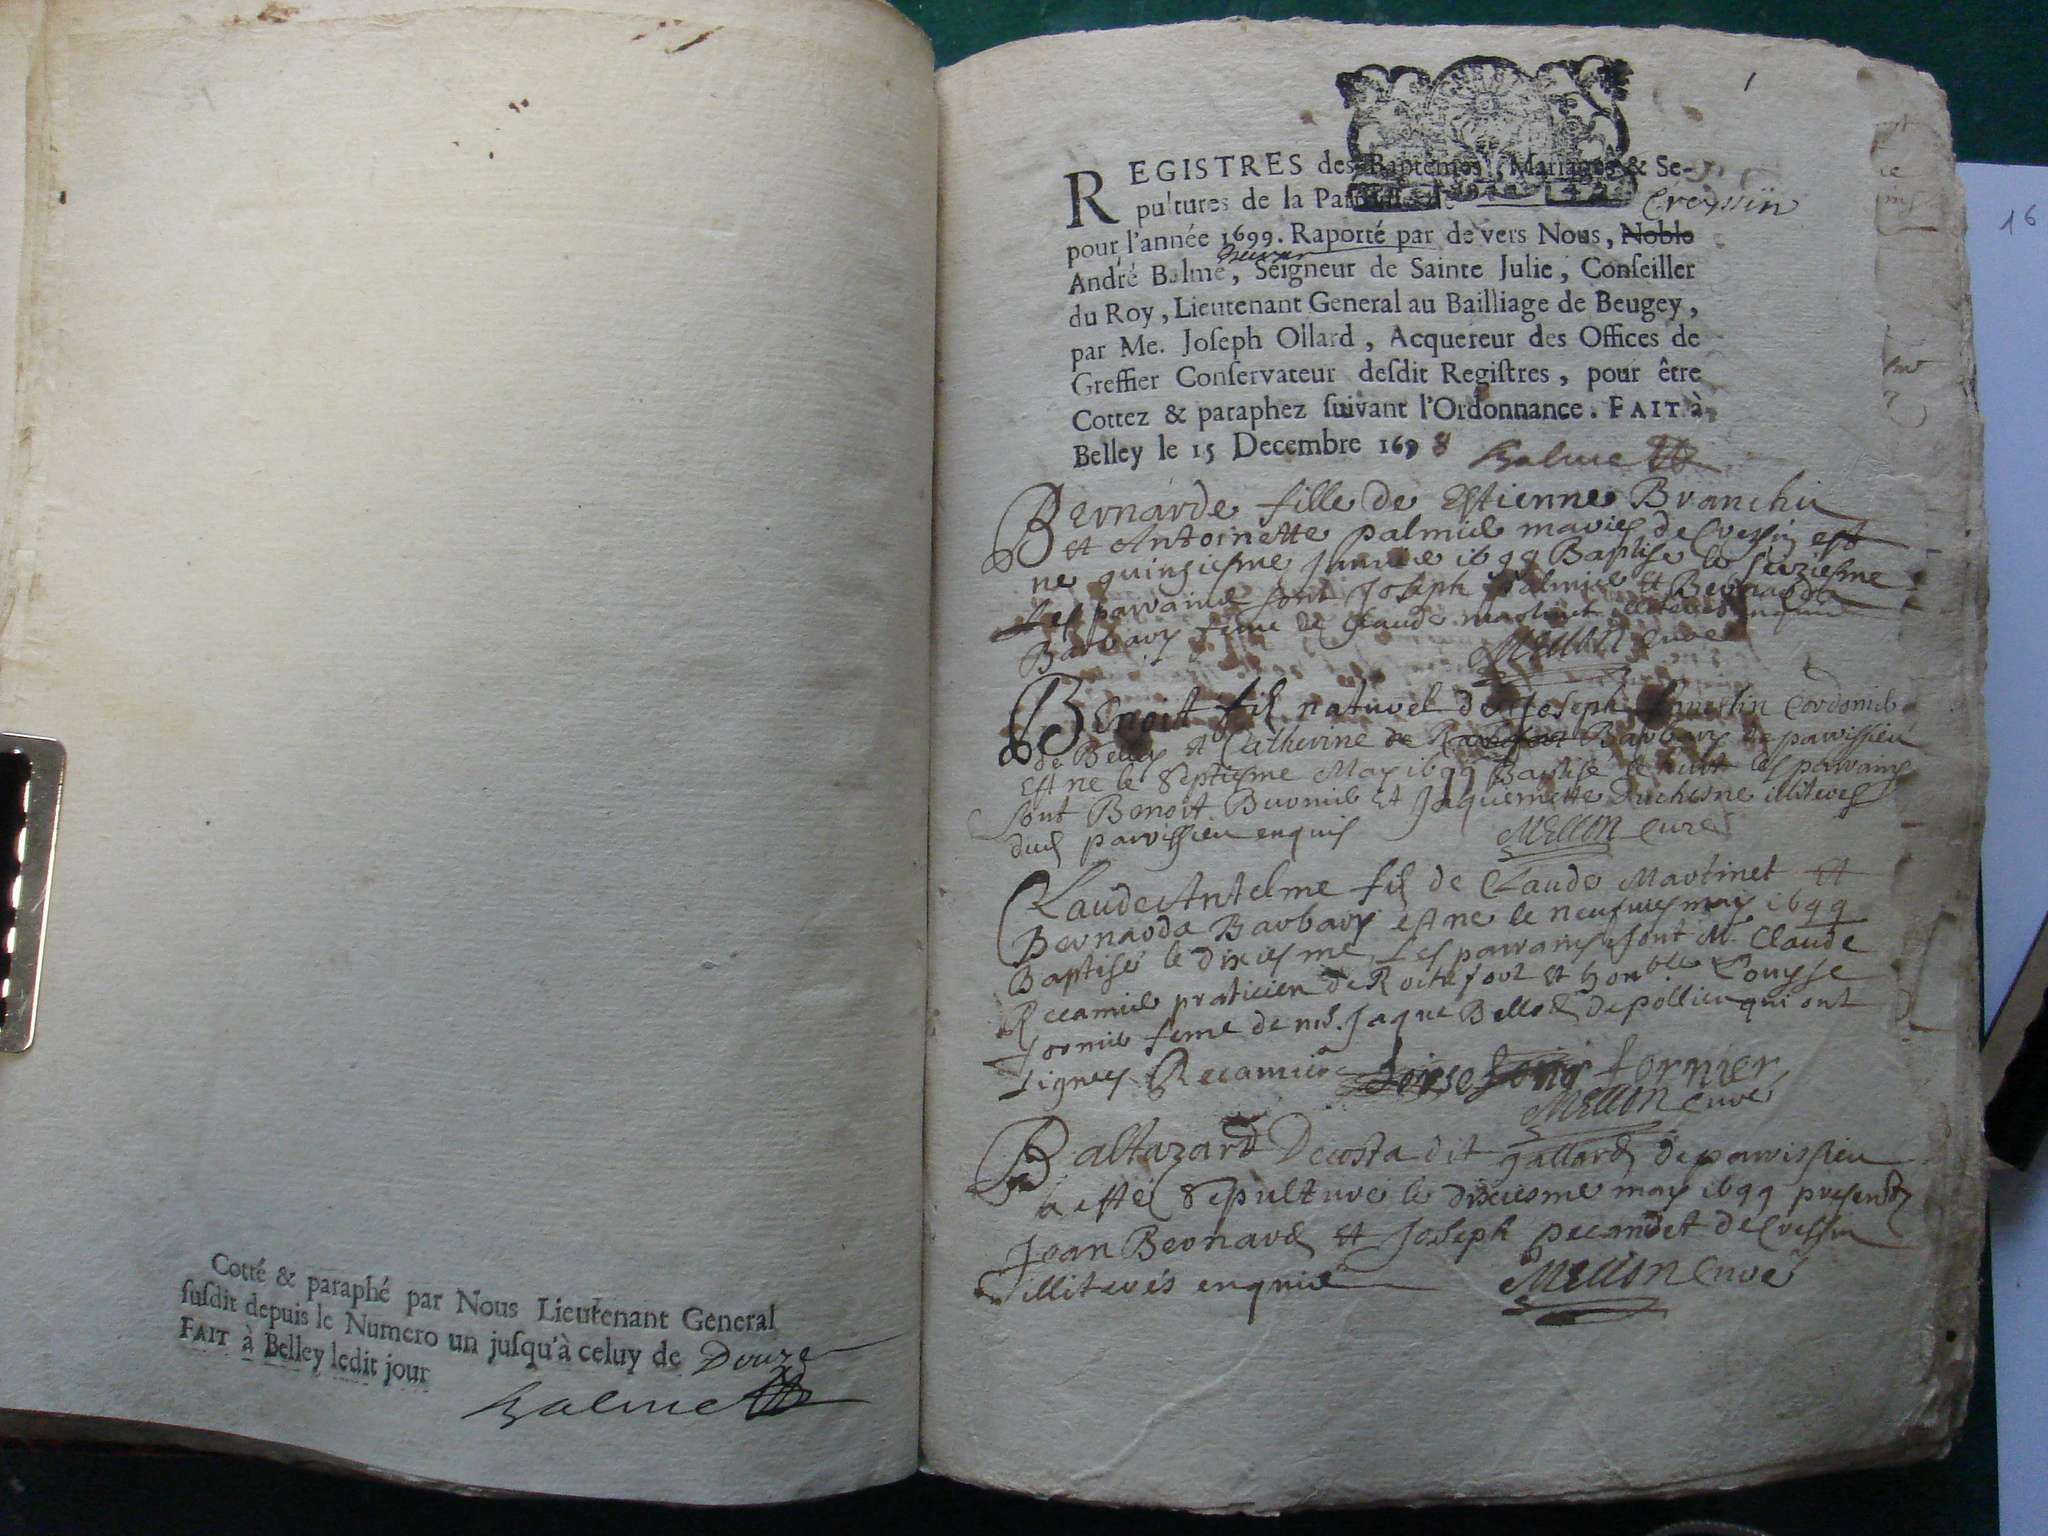 Cotté & paraphé par Nous Lieutenant General
ſuſdit depuis le Numero un juſqu'à celuy de Douze
FAIT à Belley ledit jour
Balme
1
REGISTRES des Baptêmes, Mariages & Se-
pultures de la Paroisse de Creyssin
pour l'année 1699. Raporté par de vers Nous, Noble
André Balme, Seigneur de Sainte Julie, Conſeiller
du Roy, Lieutenant General au Bailliage de Beugey,
par Me. Joſeph Ollard, Acquereur des Offices de
Greffier Conſervateur deſdit Regiſtres, pour être
Cottez & paraphez ſuivant l'Ordonnance. FAIT à
Belley le 15 Decembre 1698 Balme
Bernarde fille de Estienne Branchu
et Antoinette palmie maries de Cressin est
ne quinsiesme 1699 Baptise le seiziesme
Les parrains sont Joseph palmie et Bernarde
Barbary feme de Claude martinet
Mellon Cure
Benoit fils naturel de Joseph Cordonie
de Belley et Catherine de Barbary de parvissieu
est ne le septiesme May 1699 Baptisé le huit les parrains
sont Benoit et Jaquemette Duchesne illiteres
dud parvissieu enquis Mellon Cure
Claude Antelme fils de Claude Martinet et
Bernarda Barbary est ne le neufvies may 1699
Baptisé le dixiesme Les parrains sont M. Claude
Recamie praticien de Rochefort et honble Louysse
fornie feme de m. Jaque Bellod de pollieu qui ont
signes Recamier fornier
Mellon Curé
Baltazard Decosta dit gallard de parvissieu
a esté sepulturé le dixiesme may 1699 presents
Jean Bernard et Joseph pecandet de Cressin
illiterés enquis Mellon Curé
16